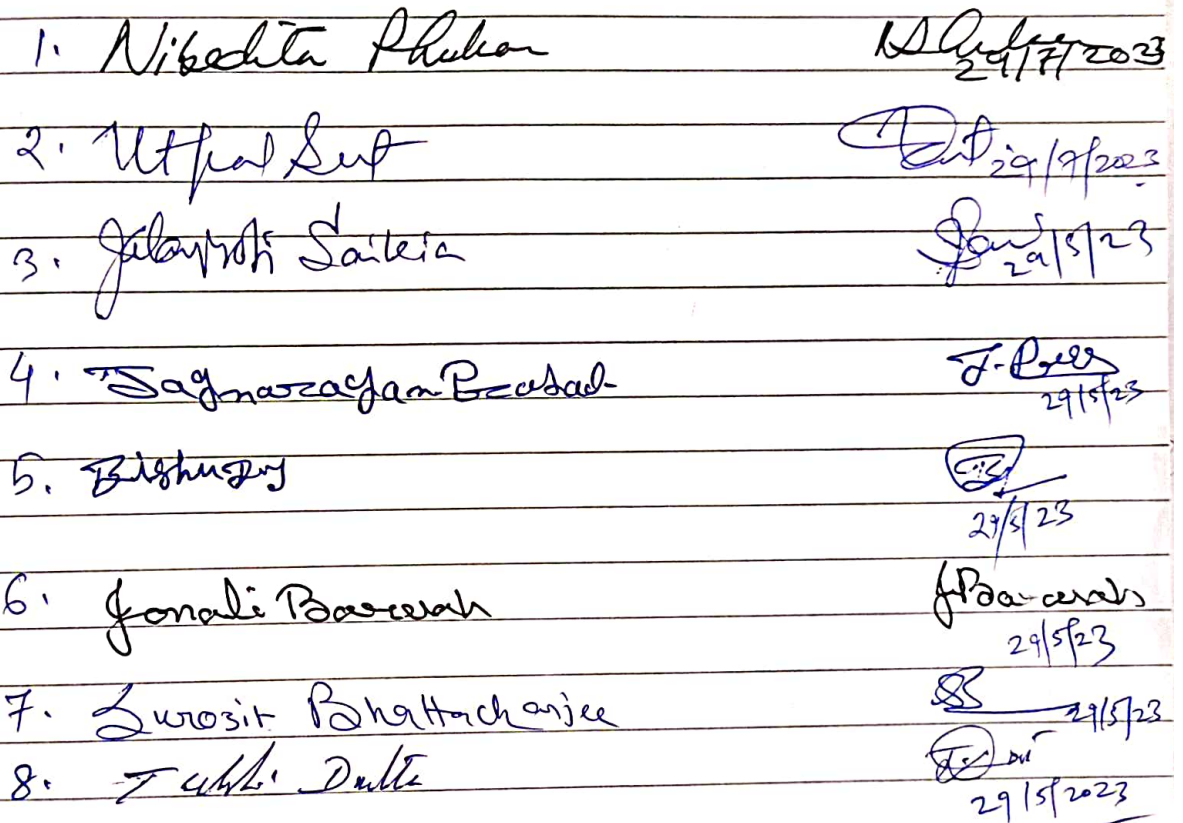 1. Nibedita Phukan 29/7/2023
2. Utpal Dut 29/7/2023
3. Saikia 29/5/23
4. Jagnarayan Prasad J. 29/5/23
5. Bishu 29/5/23
6. Jonali Baruah JBaruah 29/5/23
7. Surozit Bhattacharjee SB 29/5/23
8. Dutta 29/5/2023